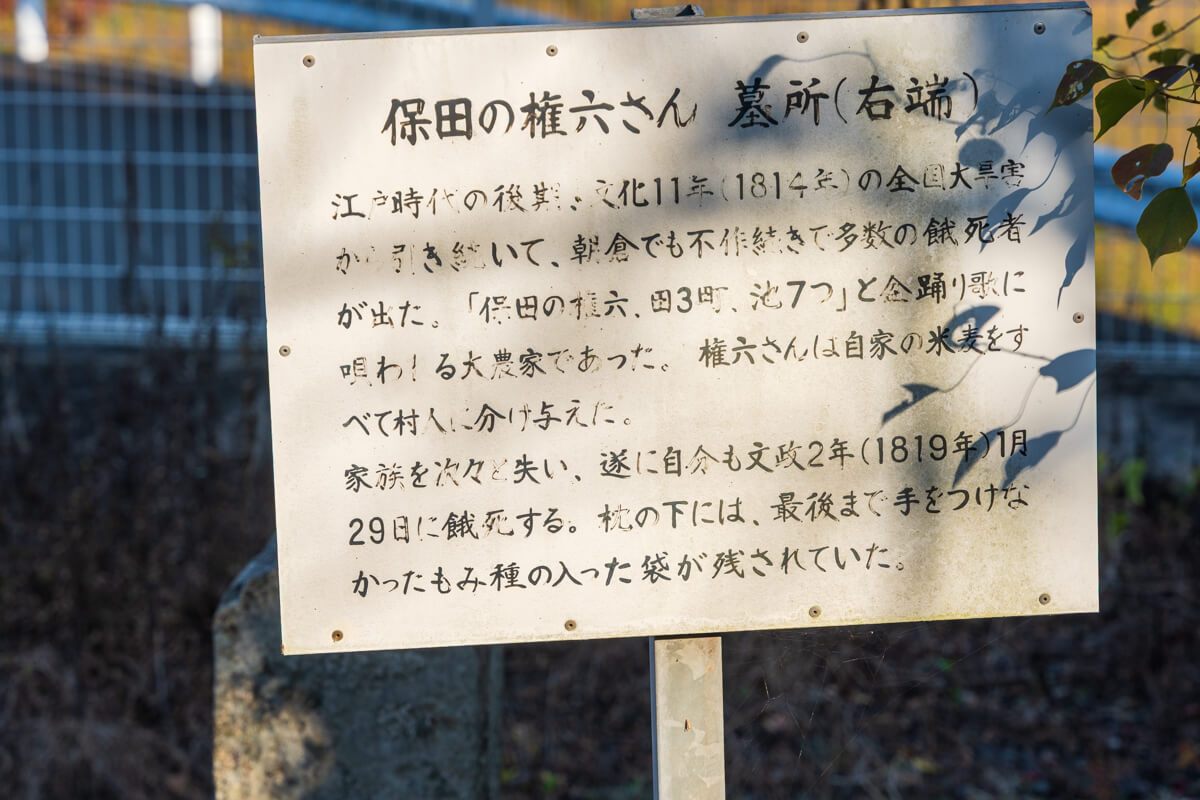 保田の権六さん 墓所(右端)
江戸時代の後期、文化11年(1814年)の全国大旱害
から引き続いて、朝倉でも不作続きで多数の餓死者
が出た。「保田の権六、田3町、池7つ」と盆踊り歌に
唄われる大農家であった。権六さんは自家の米麦をす
べて村人に分け与えた。
家族を次々と失い、遂に自分も文政2年(1819年)1月
29日に餓死する。枕の下には、最後まで手をつけな
かったもみ種の入った袋が残されていた。